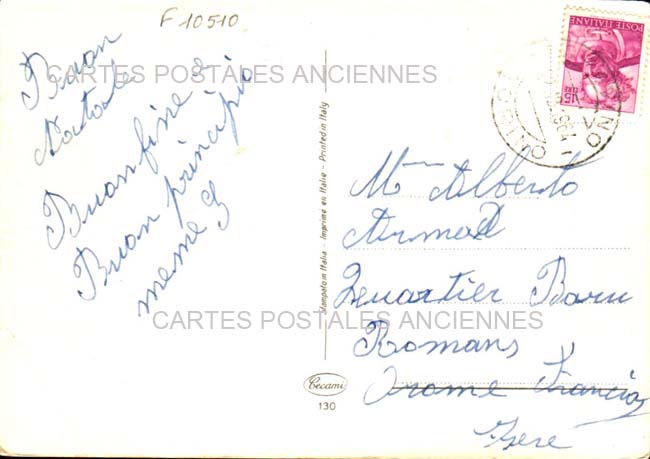 F 10510
Buon
Natale
Buon fine e
Buon principio
meme
CARTES POSTALES ANCIENNES
Stampato in Italia - Imprimé en Italie - Printed in Italy
Cecami
130
POSTE ITALIANE
LIRE 15
TORINO
Mme Alberto
Armad
Quartier Baru
Romans
Drome Francia
Isere
CARTES POSTALES ANCIENNES